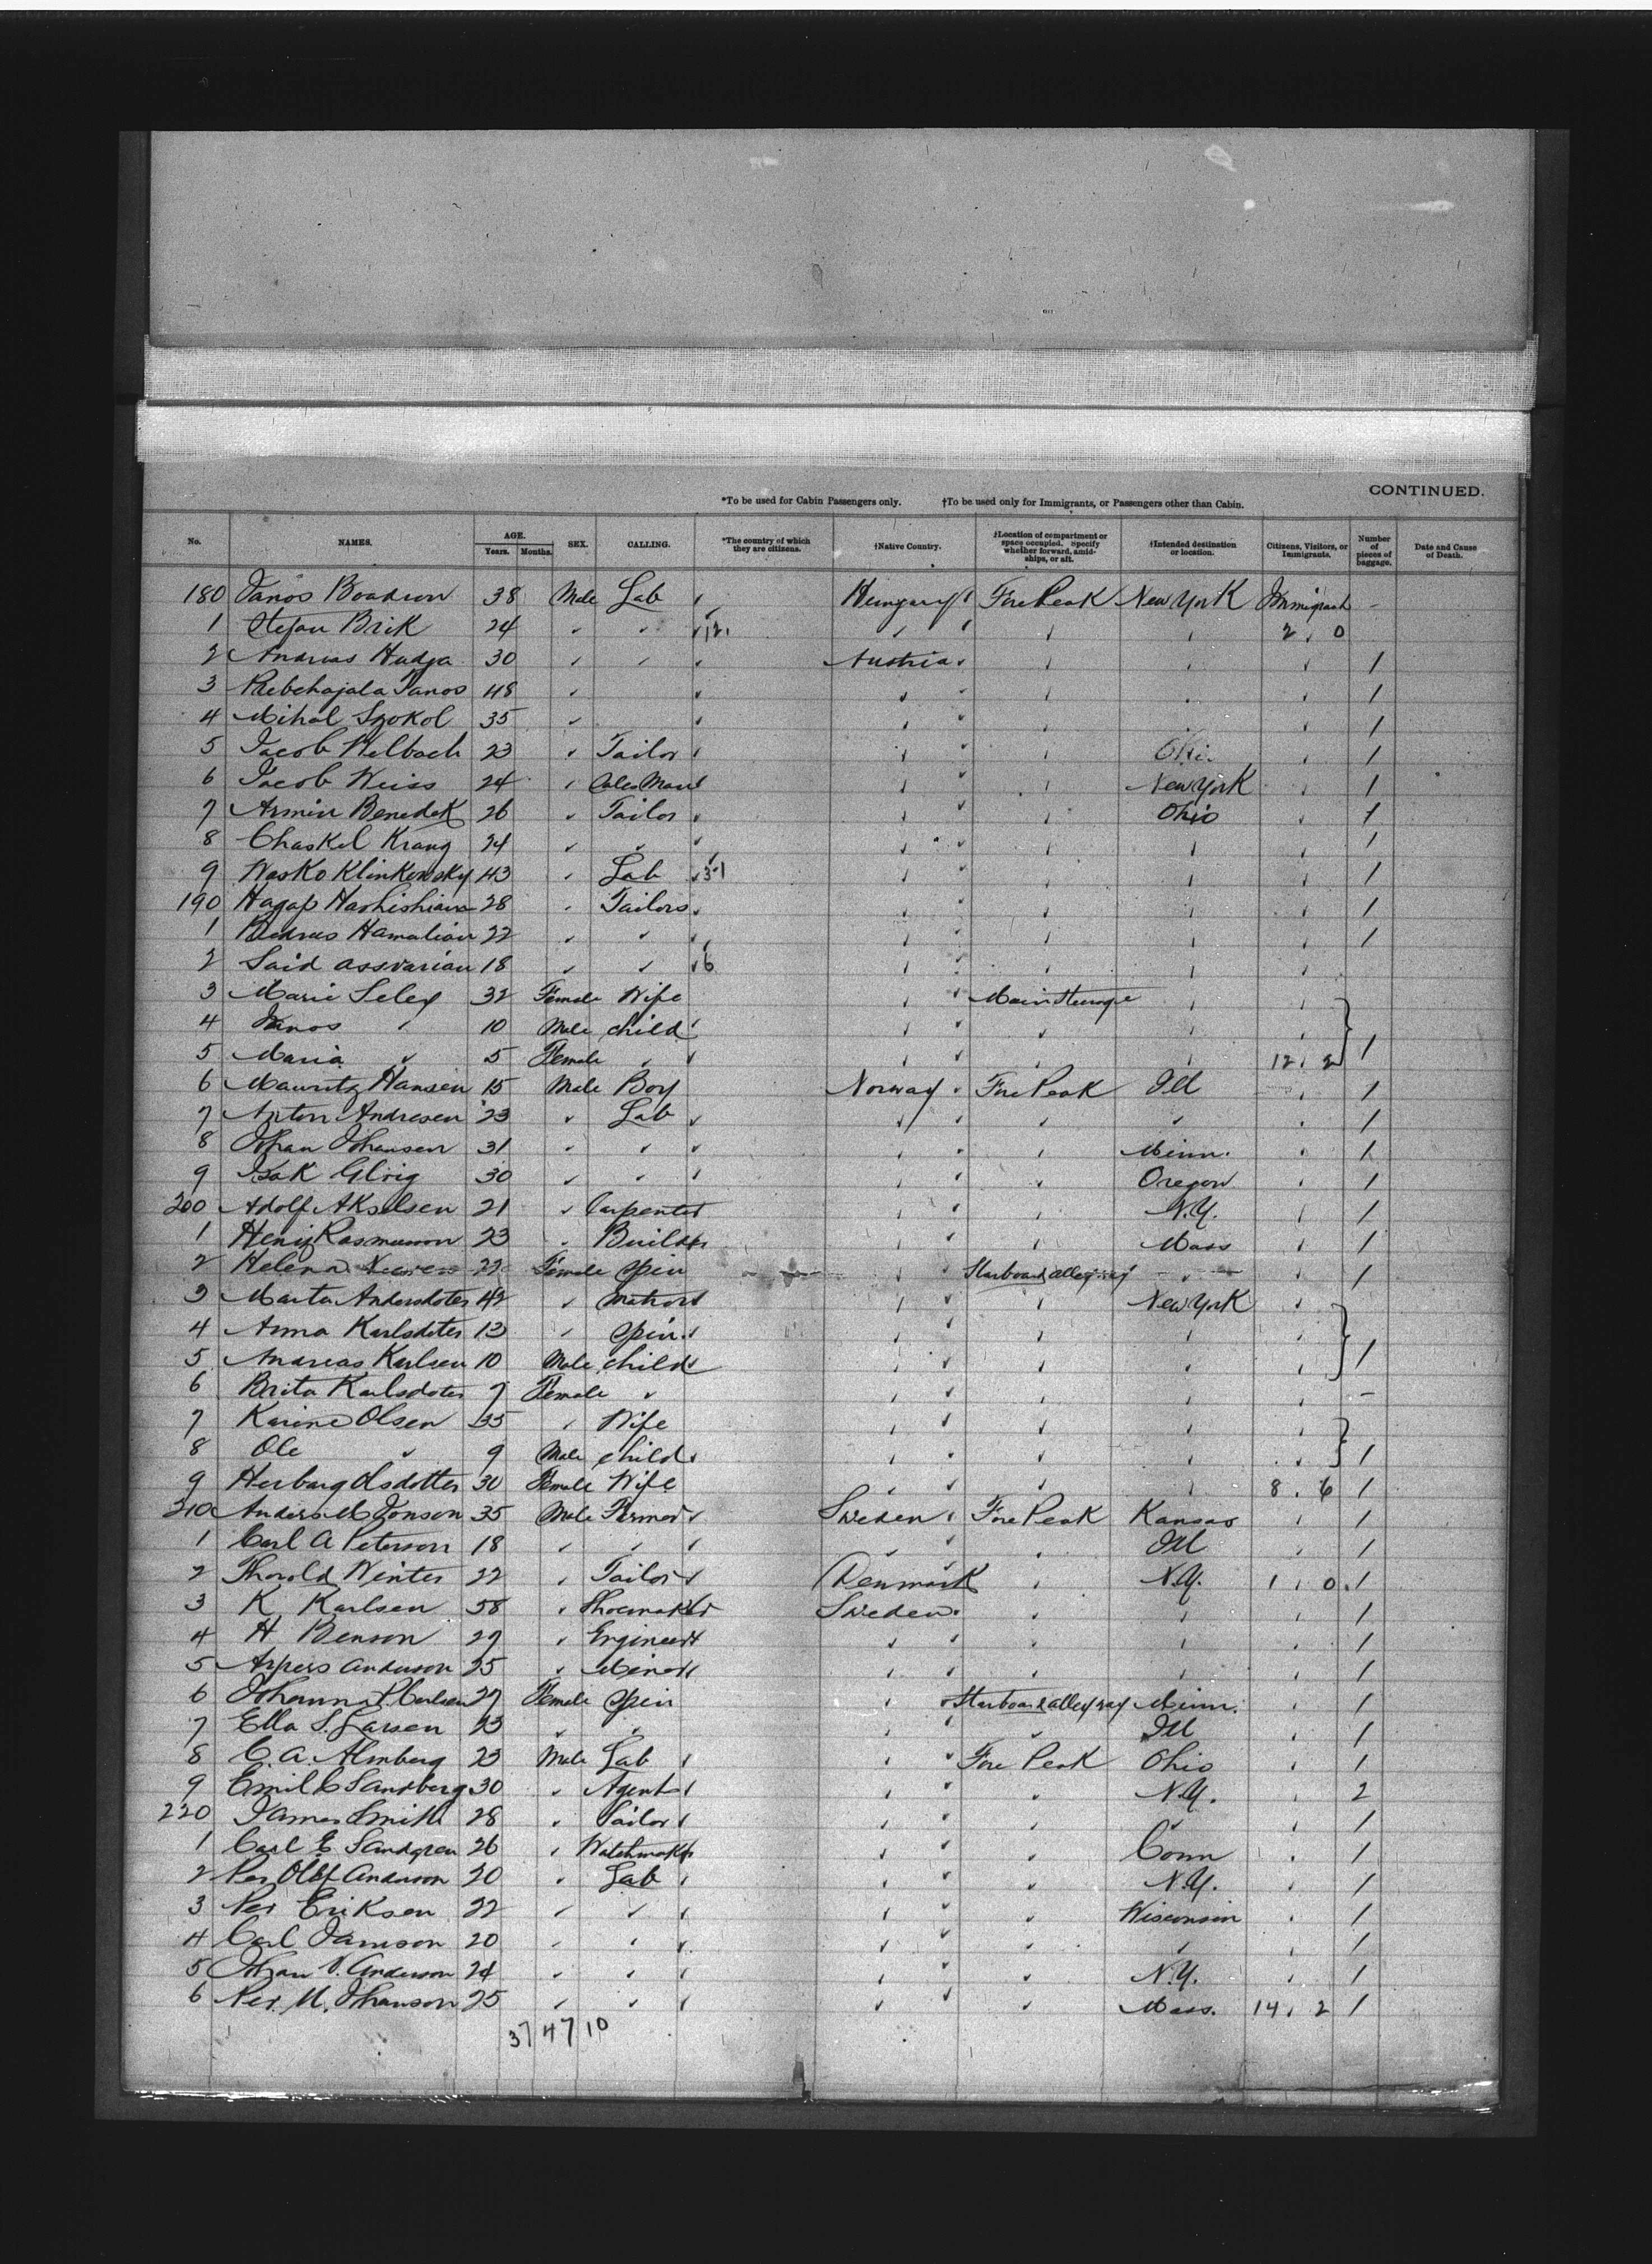 CONTINUED.
*To be used for Cabin Passengers only. †To be used only for Immigrants, or Passengers other than Cabin.
No. NAMES. AGE. Years. Months. SEX. CALLING. *The country of which they are citizens. †Native Country. †Location of compartment or space occupied. Specify whether forward, amidships, or aft. †Intended destination or location. Citizens, Visitors, or Immigrants. Number of pieces of baggage. Date and Cause of Death.
180 Janos 38 Male Lab Hungary Fore Peak New York Immigrant -
1 Stefan Brik 24 2 0
2 Andreas Hudja 30 Austria 1
3 Janos 48 1
4 Mihal Szokol 35 1
5 Jacob 23 Tailor Ohio 1
6 Jacob Weiss 24 Sales Man New York 1
7 Armin Benedek 26 Tailor Ohio 1
8 Chaskel Krang 24 1
9 Wasko Klinkowsky 43 Lab 1
190 Hagap 28 Tailors 1
1 Bedros Hamalian 22 1
2 Said Assvarian 18 6
3 Marie 32 Female Wife Main Steerage
4 Janos 10 Male child
5 Maria 5 Female 12 2 1
6 Mauritz Hansen 15 Male Boy Norway Fore Peak Ill 1
7 Anton Andresen 23 Lab 1
8 Johan Johansen 31 Minn. 1
9 Isak 30 Oregon 1
200 Adolf Akselsen 21 Carpenter N.Y. 1
1 Henry Rasmusson 23 Builder Mass 1
2 Helena 22 Female Spin Starboard alleyway 1
3 Marta Andersdoter 42 Matron New York
4 Anna Karlsdoter 13 Spin
5 Andreas Karlsen 10 Male child 1
6 Brita Karlsdoter 7 Female -
7 Karine Olsen 35 Wife
8 Ole 9 Male child 1
9 Herborg Olsdotter 30 Female Wife 8 6 1
210 Anders M Jonson 35 Male Farmer Sweden Fore Peak Kansas 1
1 Carl A Peterson 18 Ill 1
2 Thorold Winter 22 Tailor Denmark N.Y. 1 0 1
3 K Karlsen 58 Shoemaker Sweden 1
4 H Benson 29 Engineer 1
5 Anderson 25 Miner 1
6 Johanna P. Carlsen 27 Female Spin Starboard alleyway Minn. 1
7 Ella S. Larsen 23 Ill 1
8 C. A. Almberg 23 Male Lab Fore Peak Ohio 1
9 Emil C Sandberg 30 Agent N.Y. 2
220 James Smith 28 Sailor 1
1 Carl E Sandgren 26 Watchmaker Conn 1
2 Per Olof Anderson 20 Lab N.Y. 1
3 Per Eriksen 22 Wisconsin 1
4 Carl Jamson 20 1
5 Johan V. Anderson 24 N.Y. 1
6 Per M. Johanson 25 Mass. 14 2 1
37 47 10